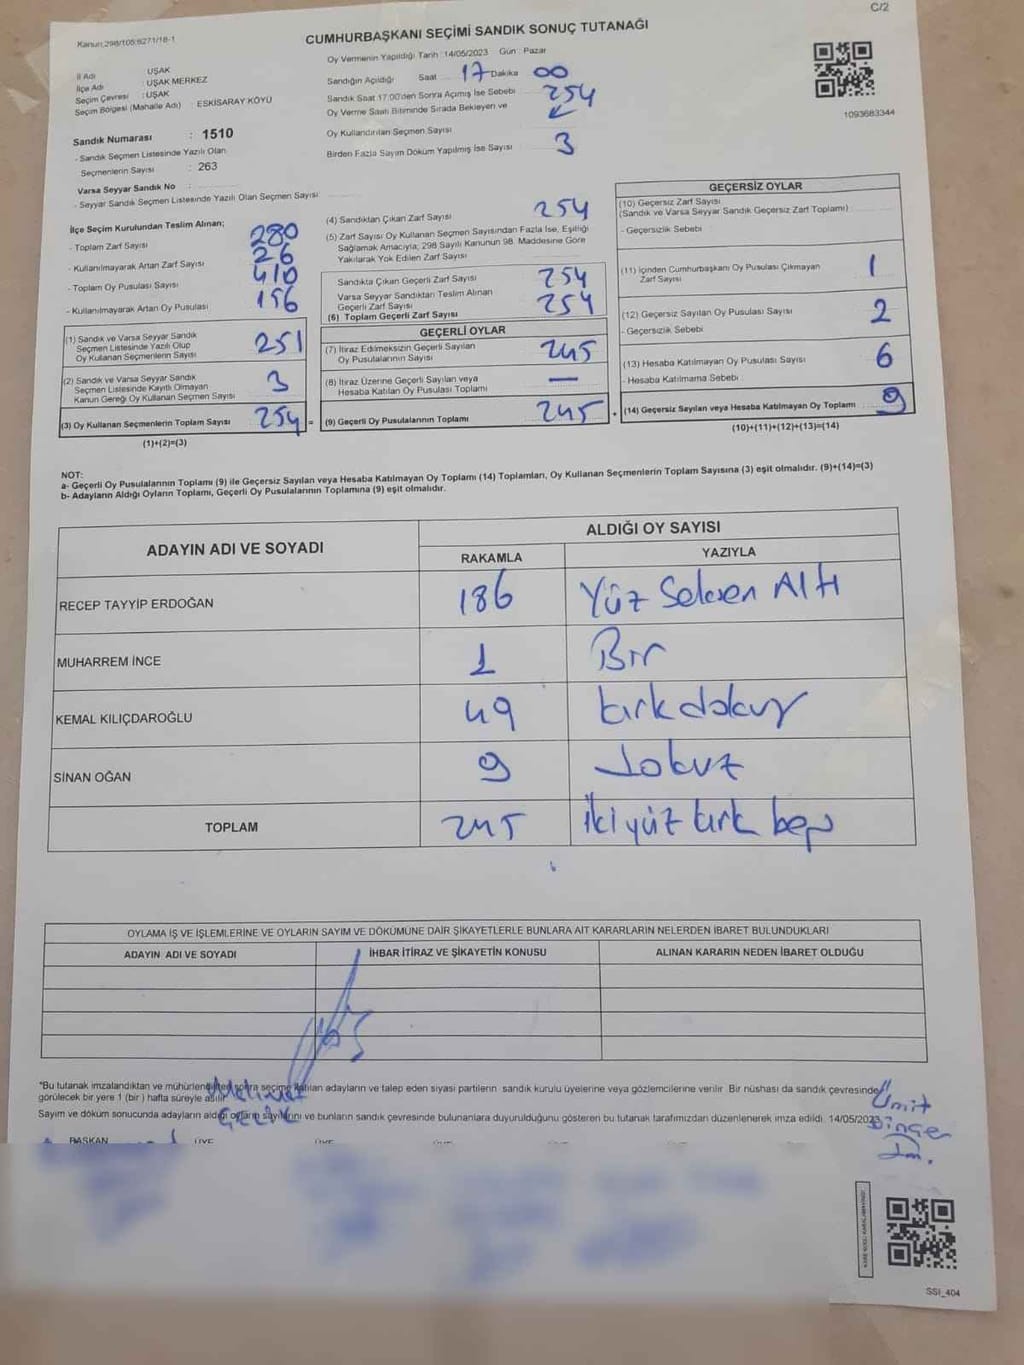 C/2
Kanun:298/105;6271/18-1
CUMHURBAŞKANI SEÇİMİ SANDIK SONUÇ TUTANAĞI
Oy Vermenin Yapıldığı Tarih :14/05/2023 Gün : Pazar
İl Adı : UŞAK
İlçe Adı : UŞAK MERKEZ
Seçim Çevresi : UŞAK
Seçim Bölgesi (Mahalle Adı) : ESKİSARAY KÖYÜ
Sandığın Açıldığı Saat 17 Dakika 00
Sandık Saat 17:00'den Sonra Açımış İse Sebebi
Oy Verme Saati Bitiminde Sırada Bekleyen ve 254
Oy Kullandırılan Seçmen Sayısı
Birden Fazla Sayım Döküm Yapılmış İse Sayısı 3
1093683344
Sandık Numarası : 1510
- Sandık Seçmen Listesinde Yazılı Olan
Seçmenlerin Sayısı : 263
Varsa Seyyar Sandık No :
- Seyyar Sandık Seçmen Listesinde Yazılı Olan Seçmen Sayısı
İlçe Seçim Kurulundan Teslim Alınan;
- Toplam Zarf Sayısı 280
- Kullanılmayarak Artan Zarf Sayısı 26
- Toplam Oy Pusulası Sayısı 410
- Kullanılmayarak Artan Oy Pusulası 156
(1) Sandık ve Varsa Seyyar Sandık
Seçmen Listesinde Yazılı Olup
Oy Kullanan Seçmenlerin Sayısı 251
(2) Sandık ve Varsa Seyyar Sandık
Seçmen Listesinde Kayıtlı Olmayan
Kanun Gereği Oy Kullanan Seçmen Sayısı 3
(3) Oy Kullanan Seçmenlerin Toplam Sayısı 254 =
(1)+(2)=(3)
(4) Sandıktan Çıkan Zarf Sayısı 254
(5) Zarf Sayısı Oy Kullanan Seçmen Sayısından Fazla İse, Eşitliği
Sağlamak Amacıyla; 298 Sayılı Kanunun 98. Maddesine Göre
Yakılarak Yok Edilen Zarf Sayısı
Sandıkta Çıkan Geçerli Zarf Sayısı 254
Varsa Seyyar Sandıktan Teslim Alınan
Geçerli Zarf Sayısı
(6) Toplam Geçerli Zarf Sayısı 254
GEÇERLİ OYLAR
(7) İtiraz Edilmeksizin Geçerli Sayılan
Oy Pusulalarının Sayısı 245
(8) İtiraz Üzerine Geçerli Sayılan veya
Hesaba Katılan Oy Pusulası Toplamı —
(9) Geçerli Oy Pusulalarının Toplamı 245
GEÇERSİZ OYLAR
(10) Geçersiz Zarf Sayısı
(Sandık ve Varsa Seyyar Sandık Geçersiz Zarf Toplamı)
- Geçersizlik Sebebi
(11) İçinden Cumhurbaşkanı Oy Pusulası Çıkmayan
Zarf Sayısı 1
(12) Geçersiz Sayılan Oy Pusulası Sayısı 2
- Geçersizlik Sebebi
(13) Hesaba Katılmayan Oy Pusulası Sayısı 6
- Hesaba Katılmama Sebebi
(14) Geçersiz Sayılan veya Hesaba Katılmayan Oy Toplamı 9
(10)+(11)+(12)+(13)=(14)
NOT:
a- Geçerli Oy Pusulalarının Toplamı (9) ile Geçersiz Sayılan veya Hesaba Katılmayan Oy Toplamı (14) Toplamları, Oy Kullanan Seçmenlerin Toplam Sayısına (3) eşit olmalıdır. (9)+(14)=(3)
b- Adayların Aldığı Oyların Toplamı, Geçerli Oy Pusulalarının Toplamına (9) eşit olmalıdır.
ADAYIN ADI VE SOYADI ALDIĞI OY SAYISI
RAKAMLA YAZIYLA
RECEP TAYYİP ERDOĞAN 186 Yüz Seksen Altı
MUHARREM İNCE 1 Bir
KEMAL KILIÇDAROĞLU 49 kırk dokuz
SİNAN OĞAN 9 dokuz
TOPLAM 245 iki yüz kırk beş
OYLAMA İŞ VE İŞLEMLERİNE VE OYLARIN SAYIM VE DÖKÜMÜNE DAİR ŞİKAYETLERLE BUNLARA AİT KARARLARIN NELERDEN İBARET BULUNDUKLARI
ADAYIN ADI VE SOYADI İHBAR İTİRAZ VE ŞİKAYETİN KONUSU ALINAN KARARIN NEDEN İBARET OLDUĞU
*Bu tutanak imzalandıktan ve mühürlendikten sonra seçime katılan adayların ve talep eden siyasi partilerin sandık kurulu üyelerine veya gözlemcilerine verilir. Bir nüshası da sandık çevresinde
görülecek bir yere 1 (bir) hafta süreyle asılır.
Sayım ve döküm sonucunda adayların aldığı oyların sayılarını ve bunların sandık çevresinde bulunanlara duyurulduğunu gösteren bu tutanak tarafımızdan düzenlenerek imza edildi. 14/05/2023
Mehmet
ÇELİK
Ümit
Dinçer
BAŞKAN ÜYE ÜYE
SSI_404